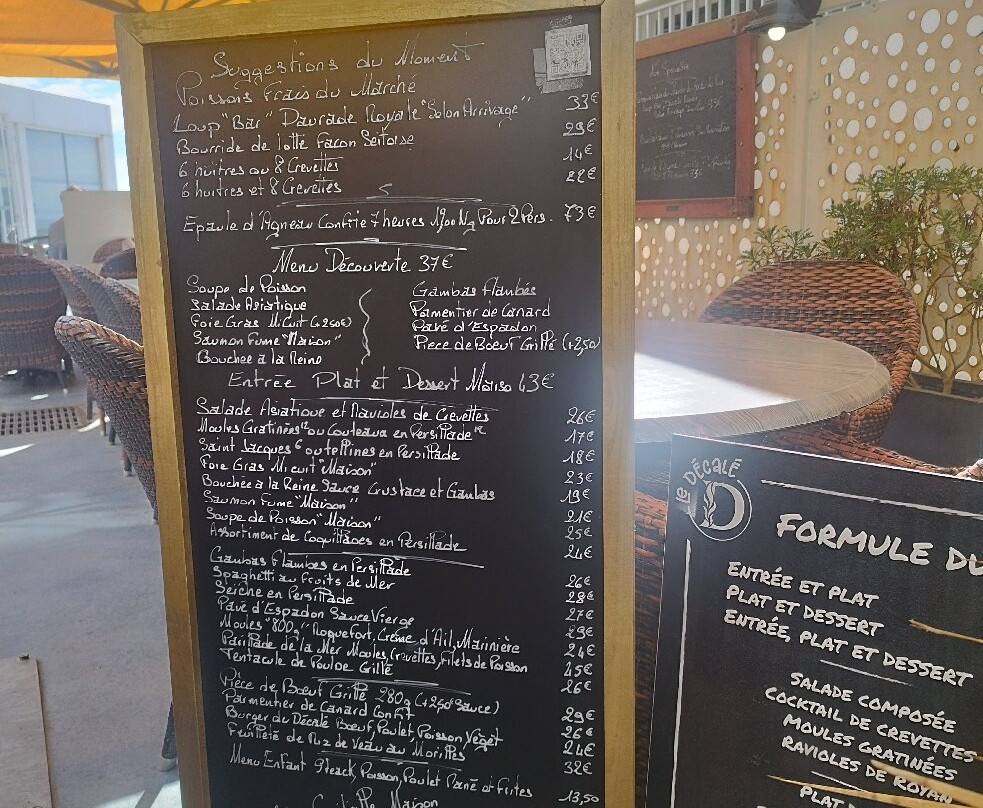 Suggestions du Moment
Poissons Frais du Marché
Loup "Bar" Daurade Royale "Selon Arrivage" 33€
Bourride de lotte Façon Setoise 29€
6 huitres ou 8 Crevettes 14€
6 huitres et 8 Crevettes 22€
Epaule d'Agneau Confite 7 heures 1,900 Kg Pour 2 Pers. 73€
Menu Découverte 37€
Soupe de Poisson
Salade Asiatique
Foie Gras Mi Cuit (+2,50€)
Saumon Fume "Maison"
Bouchee à la Reine
Gambas Flambés
Parmentier de Canard
Pavé d'Espadon
Piece de Boeuf Grillé (+2,50)
Entrée Plat et Dessert Maiso 43€
Salade Asiatique et Ravioles de Crevettes 26€
Moules Gratinées 12 ou Couteaux en Persillade 12 17€
Saint Jacques 6 ou tellines en Persillade 18€
Foie Gras Mi cuit "Maison" 23€
Bouchee à la Reine Sauce Crustace et Gambas 19€
Saumon Fume "Maison" 21€
Soupe de Poisson "Maison" 25€
Assortiment de Coquillages en Persillade 24€
Gambas Flambes en Persillade 26€
Spaghetti au Fruits de Mer 28€
Seiche en Persillade 27€
Pavé d'Espadon Sauce Vierge 29€
Moules "800g" Roquefort, Crème d'Ail, Marinière 24€
Parillade de la Mer Moules, Crevettes, Filets de Poisson 45€
Tentacule de Poulpe Grillé 26€
Pièce de Bœuf Grillé 280g (+2,50 Sauce) 29€
Parmentier de Canard Confit 26€
Burger du Décalé Bœuf, Poulet, Poisson, Véget 24€
Feuilleté de Riz de Veau au Morilles 32€
Menu Enfant Steack, Poisson, Poulet Pané et frites 13,50
Maison
LE DÉCALÉ
FORMULE DU
ENTRÉE ET PLAT
PLAT ET DESSERT
ENTRÉE, PLAT ET DESSERT
SALADE COMPOSÉE
COCKTAIL DE CREVETTES
MOULES GRATINÉES
RAVIOLES DE ROYAN
PLAT